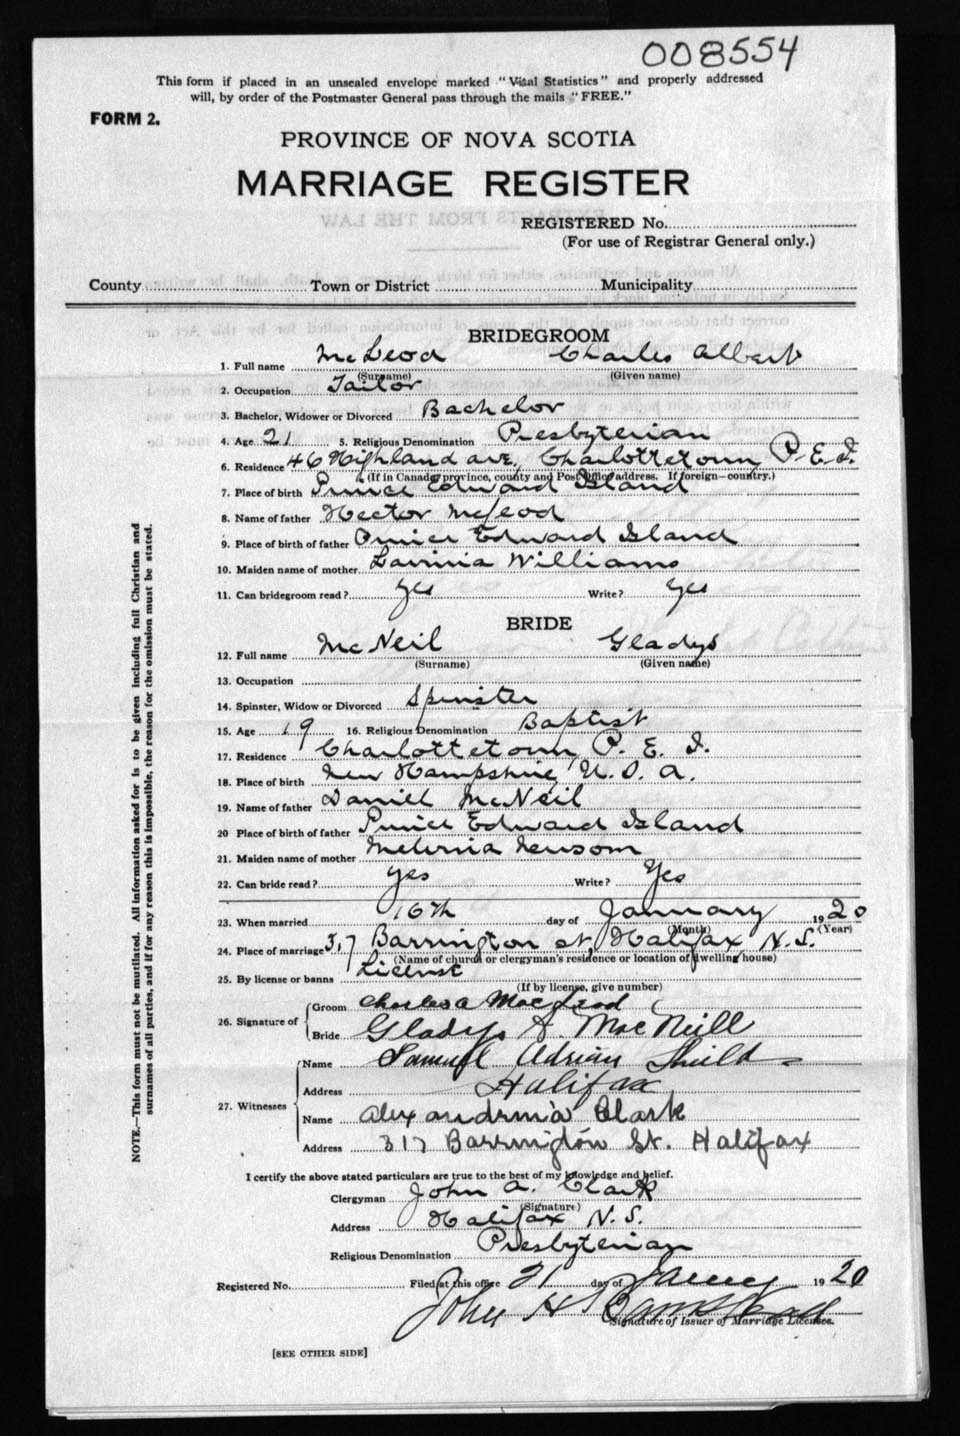 008554
This form if placed in an unsealed envelope marked "Vital Statistics" and properly addressed
will, by order of the Postmaster General pass through the mails "FREE."
FORM 2.
PROVINCE OF NOVA SCOTIA
MARRIAGE REGISTER
REGISTERED No.
(For use of Registrar General only.)
County Town or District Municipality
BRIDEGROOM
1. Full name McLeod Charles Albert
(Surname) (Given name)
2. Occupation Tailor
3. Bachelor, Widower or Divorced Bachelor
4. Age 21 5. Religious Denomination Presbyterian
6. Residence 46 Highland ave, Charlottetown, P.E.I.
(If in Canada, province, county and Post Office address. If foreign—country.)
7. Place of birth Prince Edward Island
8. Name of father Hector McLeod
9. Place of birth of father Prince Edward Island
10. Maiden name of mother Lavinia Williams
11. Can bridegroom read? Yes Write? Yes
BRIDE
12. Full name McNeil Gladys
(Surname) (Given name)
13. Occupation
14. Spinster, Widow or Divorced Spinster
15. Age 19 16. Religious Denomination Baptist
17. Residence Charlottetown, P. E. I.
18. Place of birth New Hampshire, U.S.A.
19. Name of father Daniel McNeil
20 Place of birth of father Prince Edward Island
21. Maiden name of mother
22. Can bride read? Yes Write? Yes
23. When married 16th day of January 1920
(Month) (Year)
24. Place of marriage 317 Barrington st, Halifax N.S.
(Name of church or clergyman's residence or location of dwelling house)
25. By license or banns License
(If by license, give number)
26. Signature of Groom Charles A MacLeod
Bride Gladys A MacNeill
27. Witnesses Name Samuel Adrian
Address Halifax
Name Clark
Address 317 Barrington St. Halifax
I certify the above stated particulars are true to the best of my knowledge and belief.
Clergyman John A. Clark
(Signature)
Address Halifax N.S.
Religious Denomination Presbyterian
Registered No. Filed at this office 21 day of 1920
John H
Signature of Issuer of Marriage Licenses.
[SEE OTHER SIDE]
NOTE.—This form must not be mutilated. All information asked for is to be given including full Christian and
surnames of all parties, and if for any reason this is impossible, the reason for the omission must be stated.